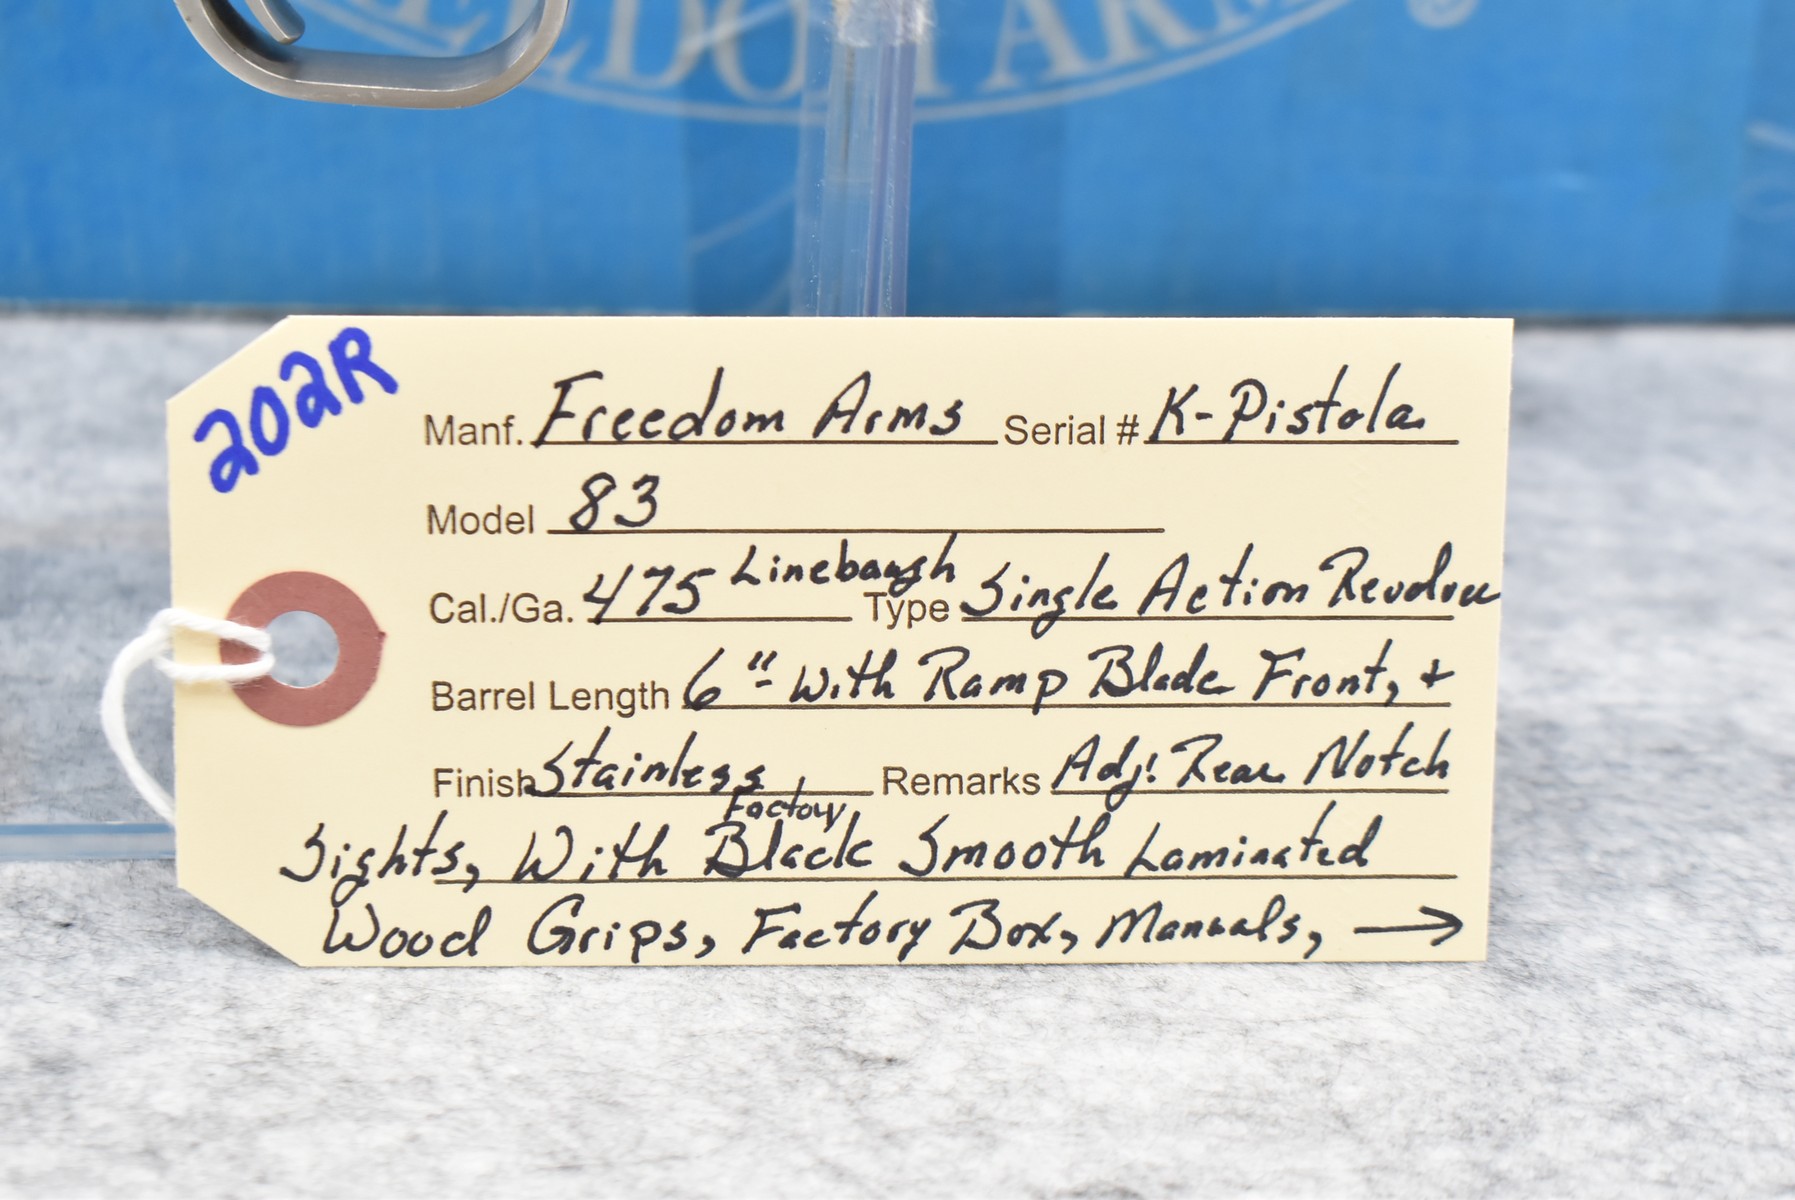 FREEDOM ARMS ®
202R
Manf. Freedom Arms Serial # K-Pistola
Model 83
Cal./Ga. 475 Linebaugh Type Single Action Revolver
Barrel Length 6" with Ramp Blade Front, +
Finish Stainless Remarks Adj. Rear Notch
Sights, With Factory Black Smooth Laminated
Wood Grips, Factory Box, Manuals, →